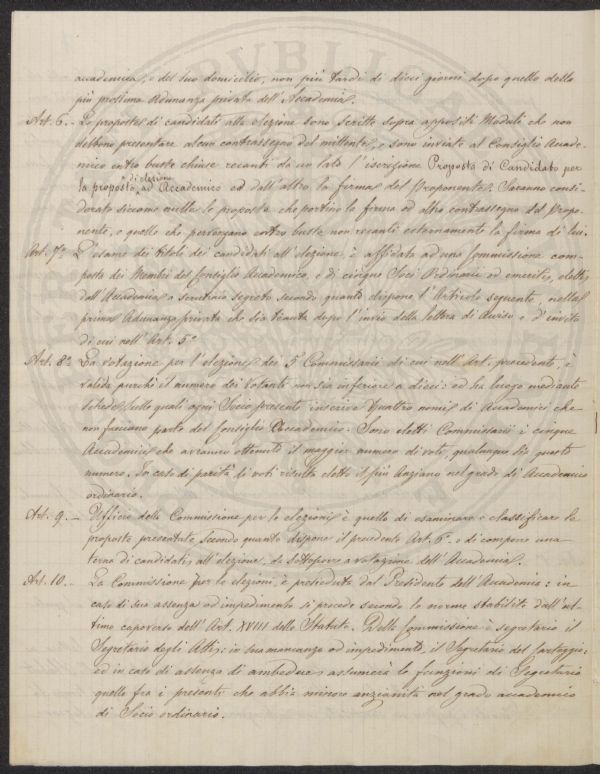 accademica, o del suo domicilio, non più tardi di dieci giorni dopo quello della
più prossima Adunanza privata dell'Accademia.
Art. 6. - Le proposte di candidati alla elezione sono scritte sopra appositi Moduli che non
debbono presentare alcun contrassegno del mittente, e sono inviate al Consiglio Accade-
mico entro buste chiuse recanti da un lato l'iscrizione Proposta di Candidato per
di elezione
la proposta ad Accademico ed dall'altro la firma del Proponente. Saranno consi-
derate siccome nulle le proposte che portino la firma od altro contrassegno del Propo-
nente, e quelle che pervengano entro buste non recanti esternamente la firma di lui.
Art. 7.º L'esame dei titoli dei candidati all'elezione, è affidata ad una Commissione com-
posta dei Membri del Consiglio Accademico, e di cinque Soci Ordinarii ed emeriti, eletti
dall'Accademia a scrutinio segreto secondo quanto dispone l'Articolo seguente, nella
prima Adunanza privata che sia tenuta dopo l'invio della lettera di avviso e d'invito
di cui nell'Art. 5.º
Art. 8.º La votazione per l'elezione dei 5 Commissarii di cui nell'Art. precedente, è
valida purchè il numero dei votanti non sia inferiore a dieci: ed ha luogo mediante
schede sulle quali ogni Socio presente inscrive quattro nomi di Accademici che
non facciano parte del Consiglio Accademico. Sono eletti Commissarii i cinque
Accademici che avranno ottenuto il maggior numero di voti, qualunque sia questo
numero. In caso di parità di voti risulta eletto il più Anziano nel grado di Accademico
ordinario.
Art. 9. - Ufficio della Commissione per le elezioni è quello di esaminare e classificare le
proposte presentate secondo quanto dispone il precedente Art. 6.º e di comporre una
terna di candidati all'elezione, da sottoporre a votazione dell'Accademia.
Art. 10. - La Commissione per le elezioni, è presieduta dal Presidente dell'Accademia: in
caso di sua assenza od impedimento si procede secondo le norme stabilite dall'ul-
timo capoverso dell'Art. XVIII dello Statuto. Della Commissione è segretario il
Segretario degli Atti: in sua mancanza od impedimento, il Segretario del Carteggio:
ed in caso di assenza di ambedue, assumerà le funzioni di Segretario
quello fra i presenti che abbia minore anzianità nel grado accademico
di Socio ordinario.